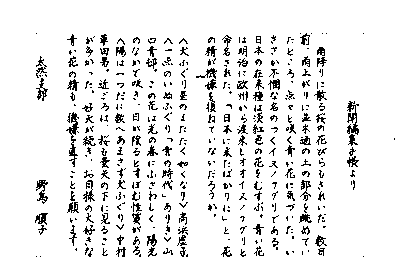 新聞編集手帳より
雨降りに散る桜の花びらもきれいだ。数日
前、雨上がりに並木道の土の部分を眺めてい
たところ、点々と咲く青い花に気づいた。い
ささか不憫な名のつくイヌノフグリである。
日本の在来種は淡紅色の花をむすぶ。青い花
は明治に欧州から渡来しオオイヌノフグリと
命名された。「日本に来たばかりに」と、花
の精が機嫌を損ねていないだろうか。
〈犬ふぐり星のまたたく如くなり〉高浜虚子
〈一点のいぬふぐり「青の時代」ありき〉山
口青邨。この花は光の春にふさわしく、陽光
のなかで咲き、日が陰るとすぼむ性質がある。
〈陽は一つだに数へあまさず犬ふぐり〉中村
草田男。近ごろは、桜も曇天の下に見ること
が多かった。好天が続き、お日様の大好きな
青い花の精も、機嫌を直すことを願います。
太然支部
野島 順子